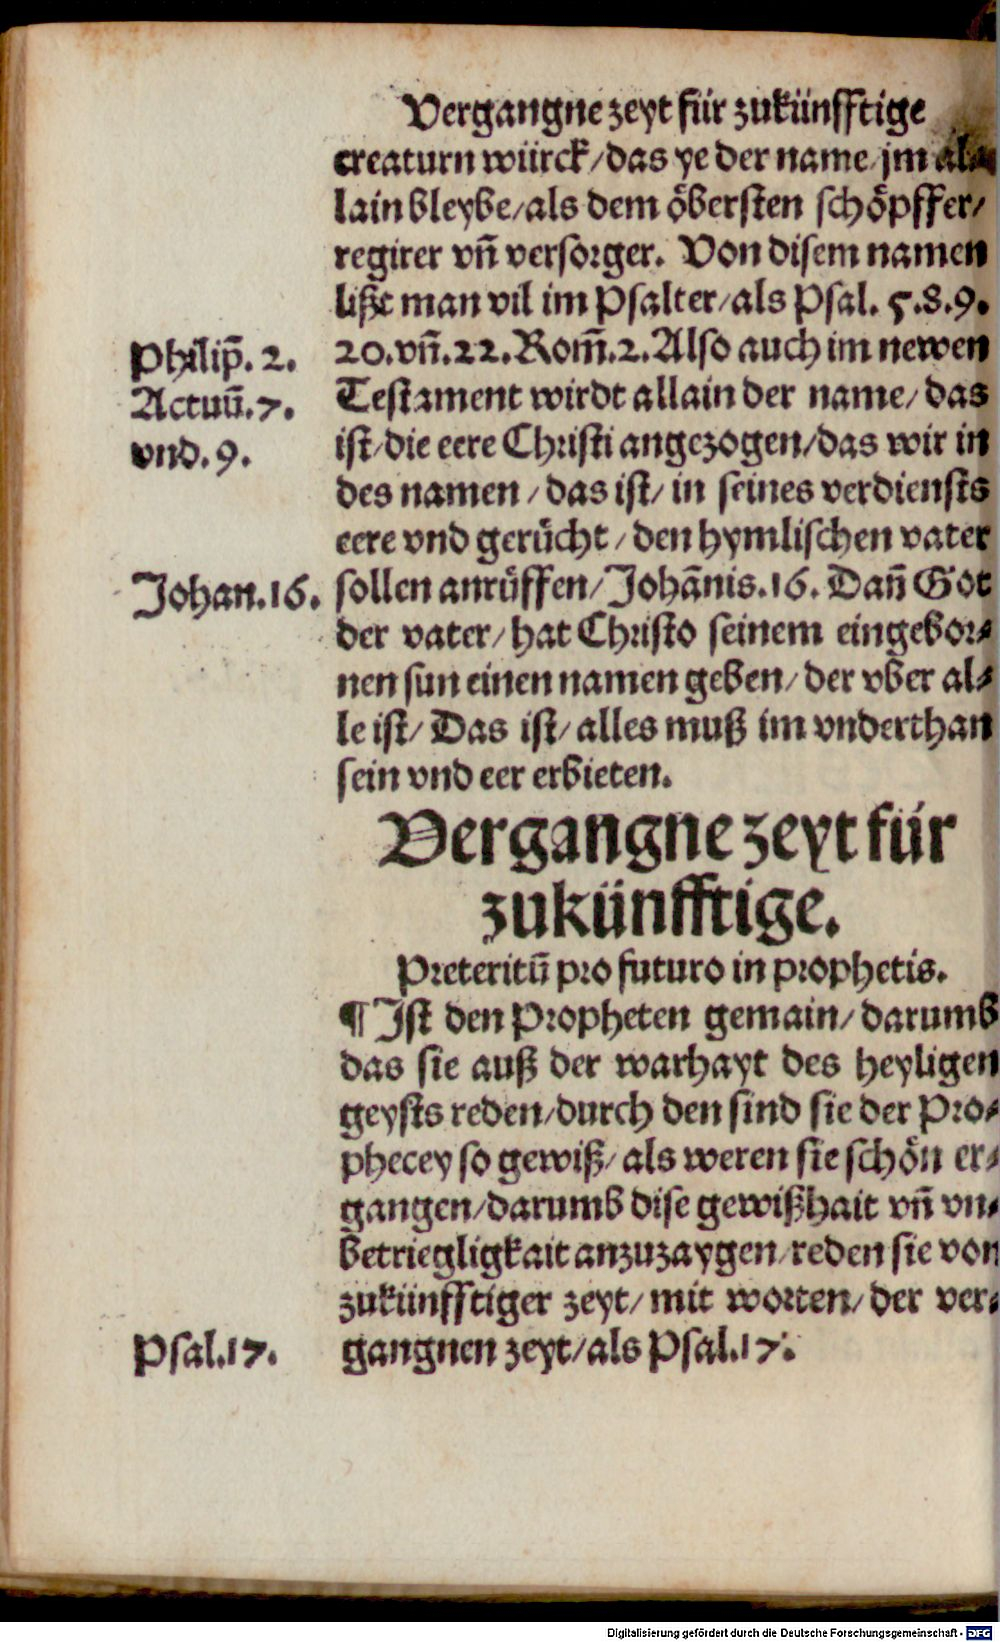 Vergangne zeyt für zukünfftige
creaturn würck/das ye der name jm al⸗
lain bleybe/als dem öbersten schöpffer/
regirer vn̄ versorger. Von disem namen
lißt man vil im Psalter/als Psal. 5.8.9.
Philip̄. 2.
20.vn̄.22.Rom̄.2.Also auch im newen
Actuū.7.
Testament wirdt allain der name/das
vnd.9.
ist/die eere Christi angezogen/das wir in
des namen/das ist/in seines verdiensts
eere vnd gerücht/den hymlischen vater
Johan.16.
sollen anrüffen/Johānis.16. Dan̄ Got
der vater/hat Christo seinem eingebor⸗
nen sun einen namen geben/der vber al⸗
le ist/Das ist/alles muß im vnderthan
sein vnd eer erbieten.
Vergangne zeyt für
zukünfftige.
Preteritū pro futuro in prophetis.
¶ Ist den Propheten gemain/darumb
das sie auß der warhayt des heyligen
geysts reden/durch den sind sie der Pro⸗
phecey so gewiß/als weren sie schön er⸗
gangen/darumb dise gewißhait vn̄ vn⸗
betriegligkait anzuzaygen/reden sie von
zukünfftiger zeyt/mit worten/der ver⸗
Psal.17.
gangnen zeyt/als Psal.17.
Digitalisierung gefördert durch die Deutsche Forschungsgemeinschaft - DFG